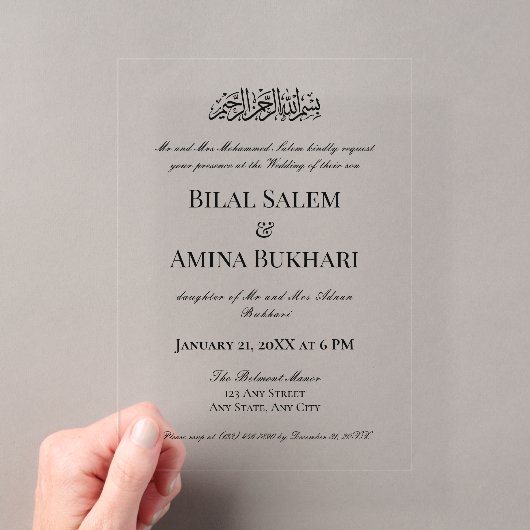 بسم الله الرحمن الرحيم
Mr and Mrs Mohammed Salem kindly request
your presence at the Wedding of their son
Bilal Salem
&
Amina Bukhari
daughter of Mr and Mrs Adnan
Bukhari
January 21, 20XX at 6 PM
The Belmont Manor
123 Any Street
Any State, Any City
Please rsvp at (132) 456-7890 by December 31, 20XX